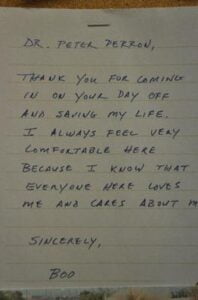 DR. PETER PERRON,
THANK YOU FOR COMING
IN ON YOUR DAY OFF
AND SAVING MY LIFE.
I ALWAYS FEEL VERY
COMFORTABLE HERE
BECAUSE I KNOW THAT
EVERYONE HERE LOVES
ME AND CARES ABOUT M
SINCERELY,
BOO